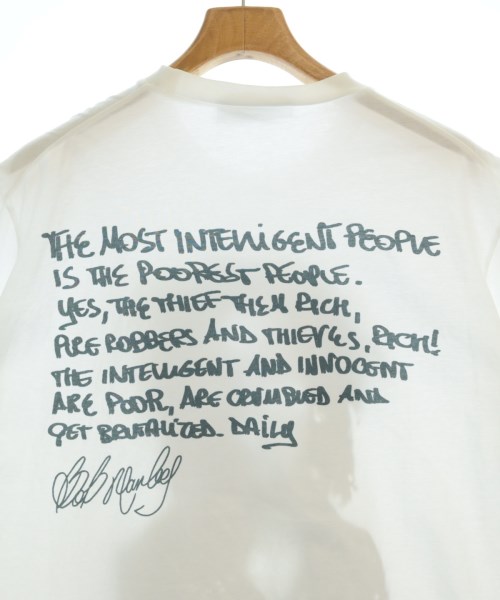 THE MOST INTELLIGENT PEOPLE
IS THE POOREST PEOPLE.
YES, THE THIEF THEM RICH,
PIRE ROBBERS AND THIEVES, RICH!
THE INTELLIGENT AND INNOCENT
ARE POOR, ARE CRUMBLED AND
GET BRUTALIZED. DAILY
Bob Marley